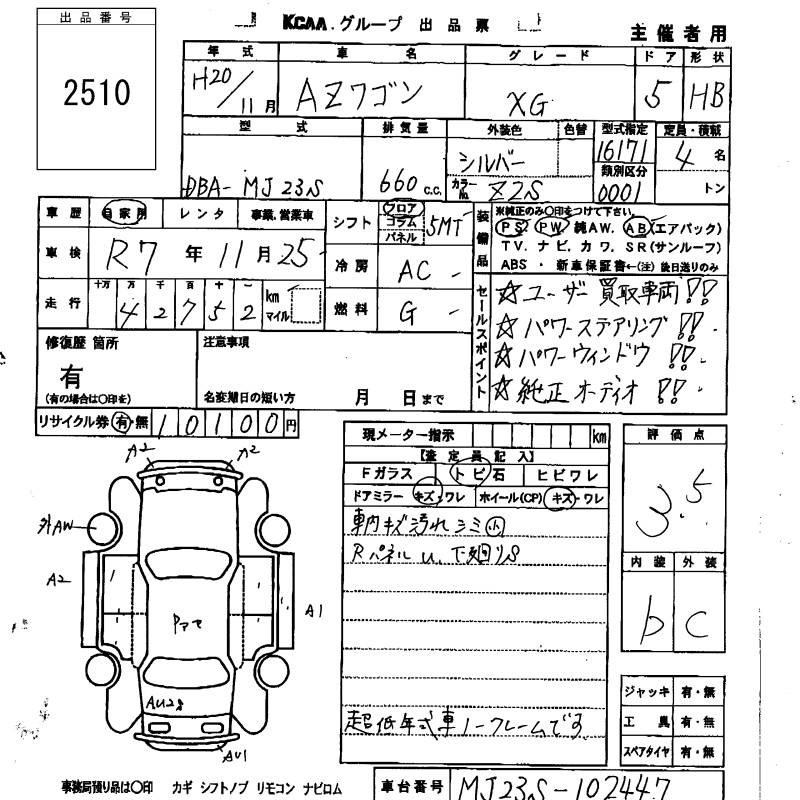 出品番号
2510
KCAA.グループ 出品票
主催者用
年式 車名 グレード ドア 形状
H20/11月 AZワゴン XG 5 HB
型式 排気量 外装色 色替 型式指定 定員・積載
DBA-MJ23S 660c.c. シルバー 16171 4名
カラーNo. Z2S 類別区分 0001 トン
車歴 自家用 レンタ 事業、営業車
シフト フロア コラム パネル 5MT
車検 R7年11月25
冷房 AC
走行 十万 万 千 百 十 一 km マイル
42752
燃料 G
装備品 ※純正のみ〇印をつけて下さい。
PS. PW. 純AW. AB(エアバック)
TV. ナビ. カワ. SR(サンルーフ)
ABS ・ 新車保証書←(注)後日送りのみ
セールスポイント
☆ユーザー買取車両!!
☆パワーステアリング!!
☆パワーウィンドウ!!
☆純正オーディオ!!
修復歴 箇所
有
(有の場合は〇印を)
注意事項
名変期日の短い方 月 日まで
リサイクル券 有・無 10100円
現メーター指示 km
【査定員記入】
Fガラス トビ石 ヒビワレ
ドアミラー キズ・ワレ ホイール(CP) キズ・ワレ
車内キズ汚れシミ小
Rパネルu、下廻りS
超低年式車ノークレームです
評価点
3.5
内装 外装
b C
ジャッキ 有・無
工具 有・無
スペアタイヤ 有・無
A2 A2
外AW
A2
A1
Pアセ
AU2
AU1
事務局預り品は〇印 カギ シフトノブ リモコン ナビロム
車台番号 MJ23S-102447